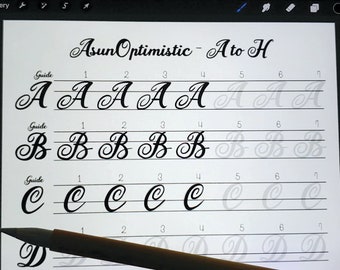 AsunOptimistic - A to H
Guide 1 2 3 4 5 6 7
A A A A A A A A
Guide 1 2 3 4 5 6 7
B B B B B B B B
Guide 1 2 3 4 5 6 7
C C C C C C C C
2 3 4 5 6 7
D D D D D D D